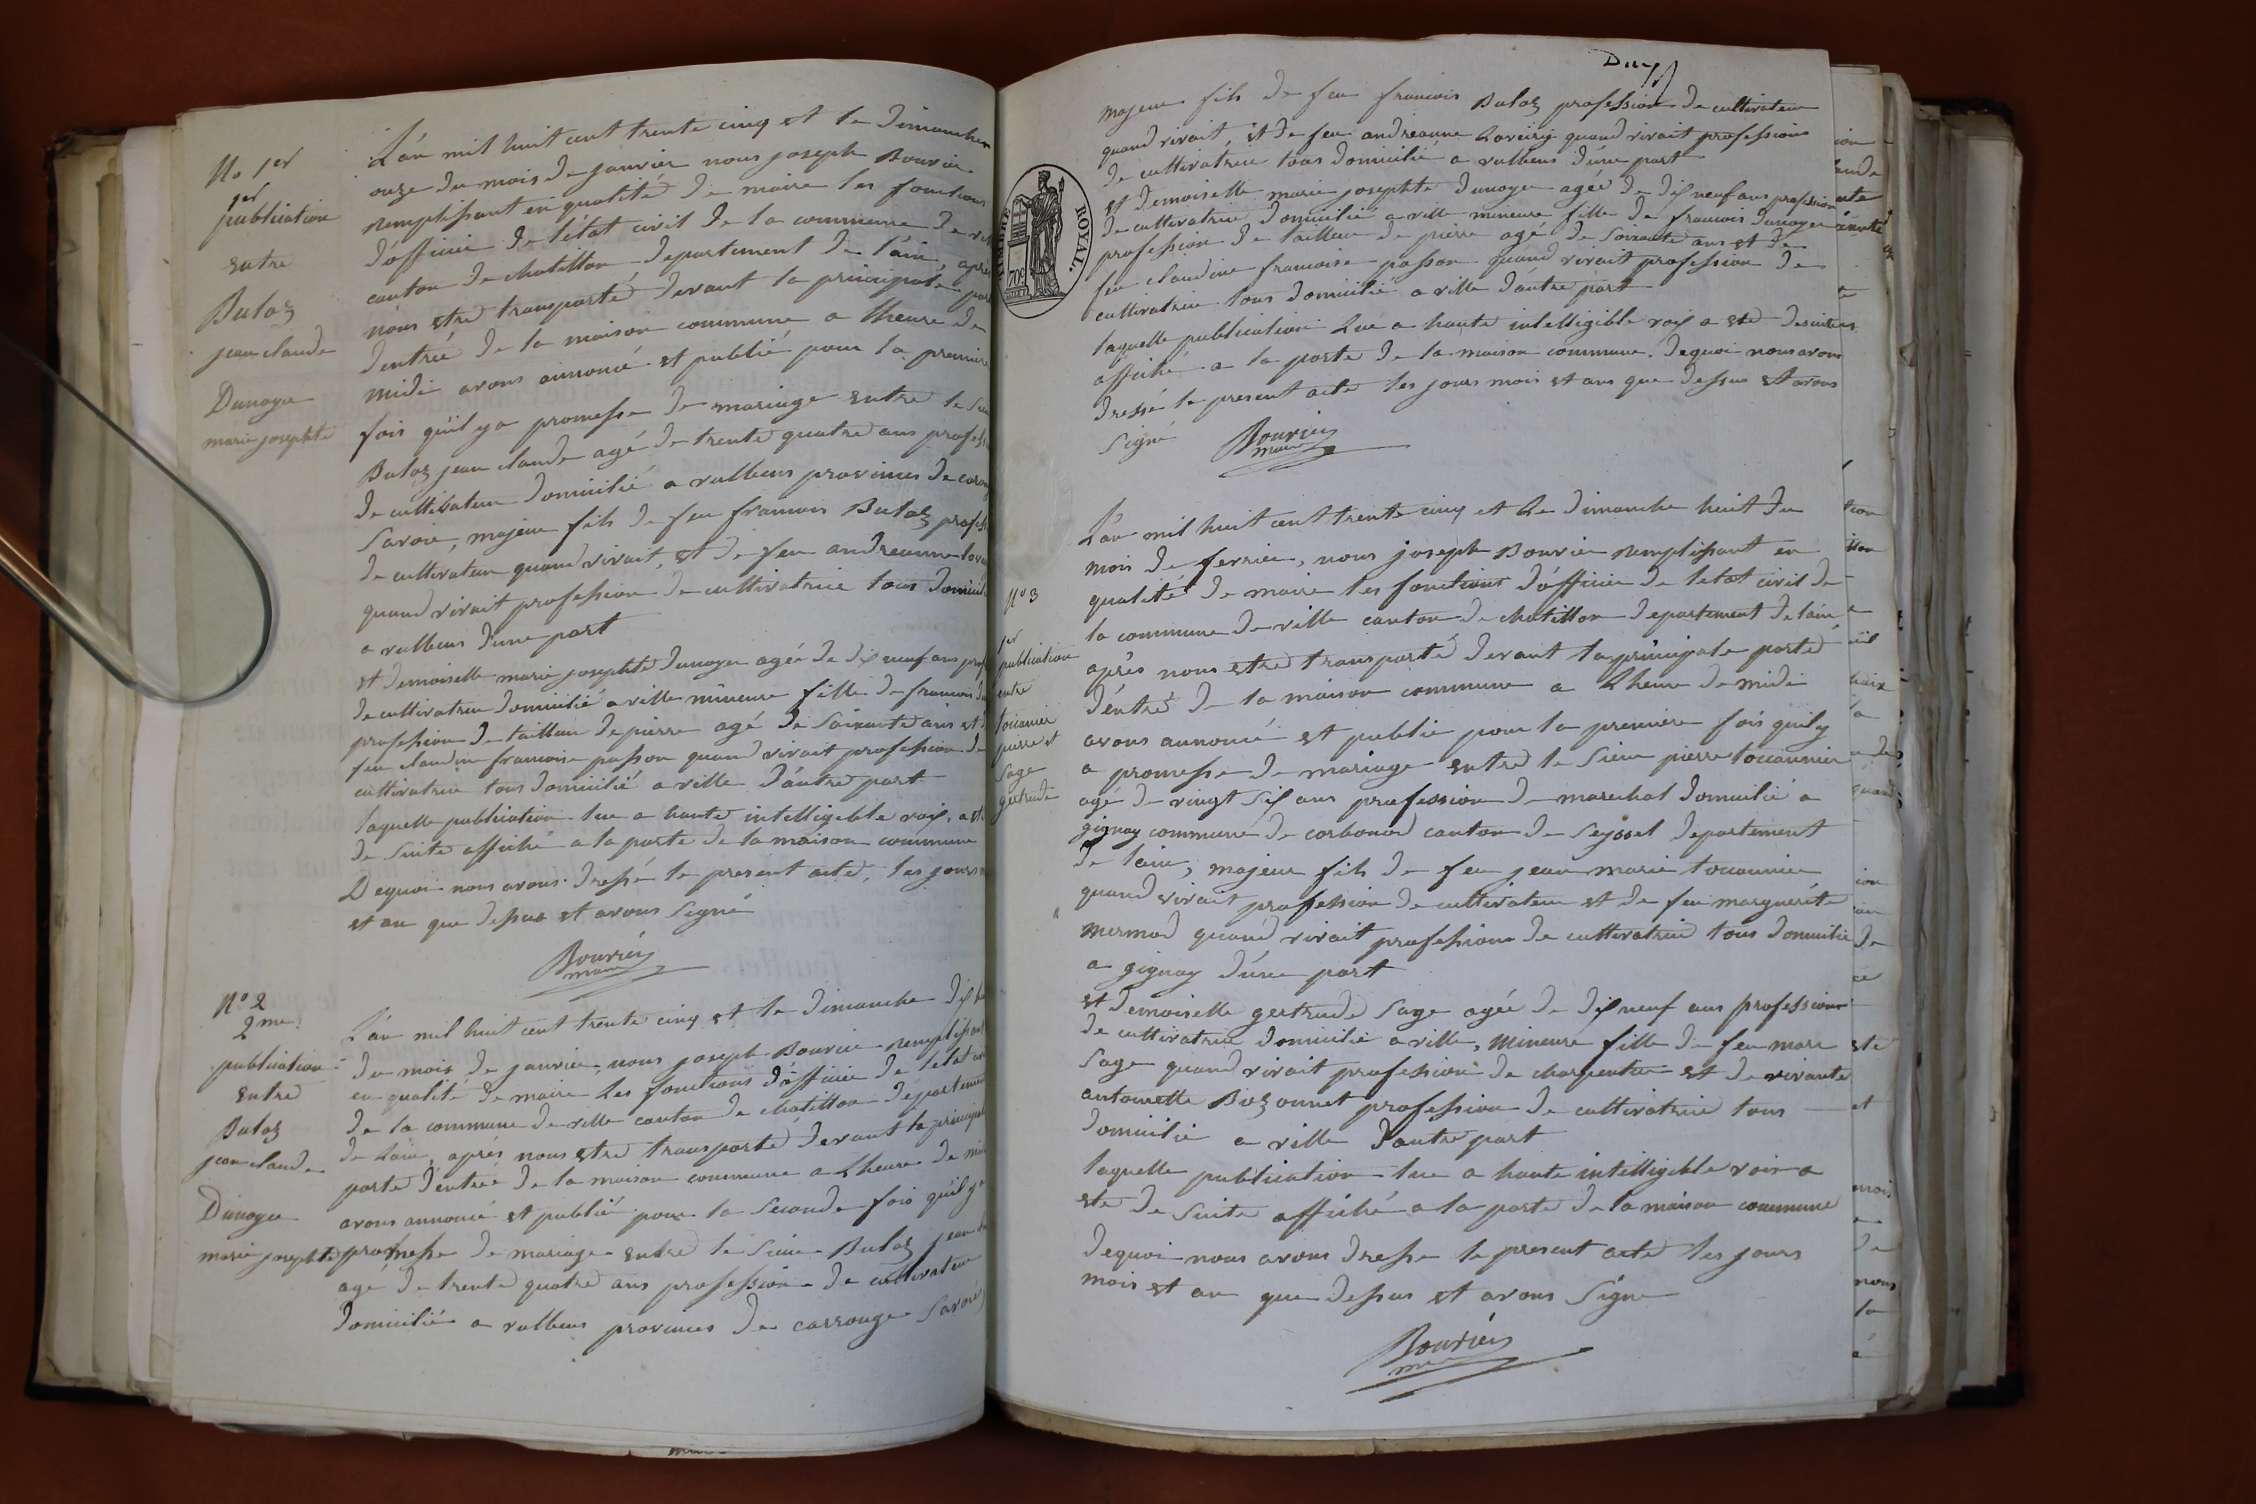 No 1er
1er
publication
entre
Butaz
jean claude
Dunoyer
marie josephte
L'an mil huit cent trente cinq et le dimanche
onze du mois de janvier nous joseph Bouvier
remplissant en qualité de maire les fonctions
d'officier de l'état civil de la commune de
canton de chatillon departement de l'ain, apres
nous etre transporté devant la principale
d'entrée de la maison commune a l'heure de
midi avons annoncé et publié pour la premiere
fois qu'il y a promesse de mariage entre le
Butaz jean claude agé de trente quatre ans
de cultivateur domicilié a vulbens provinces de
Savoie, majeur fils de feu francois Butaz
de cultivateur quand vivait, et de feu andreanne
quand vivait profession de cultivatrice tous
a vulbens d'une part
et demoiselle marie josephte dunoyer agée de dix neuf ans
de cultivatrice domicilié a ville mineure fille de francois
profession de tailleur de pierre agé de Soixante ans et
feu claudine francoise passon quand vivait profession de
cultivatrice tous domicilié a ville d'autre part
laquelle publication lue a haute intelligible voix, a
de suite affiché a la porte de la maison commune
Dequoi nous avons dressé le present acte, les jours
et an que dessus et avons Signé
Bouvier
maire
No 2
2me
publication
entre
Butaz
jean claude
Dunoyer
marie josephte
L'an mil huit cent trente cinq et le dimanche dix
du mois de janvier, nous joseph Bouvier remplissant
en qualité de maire les fonctions d'officier de l'etat
de la commune de ville canton de chatillon departement
de l'ain, après nous etre transporté devant la
porte d'entrée de la maison commune a l'heure de
avons annoncé et publié pour la Seconde fois qu'il y a
promesse de mariage entre le Sieur Butaz jean
agé de trente quatre ans profession de cultivateur
domicilié a vulbens provinces de carrouge Savoie
Dup
majeur fils de feu francois Butaz profession de cultivateur
quand vivait, et de feu andreanne quand vivait profession
de cultivatrice tous domicilié a vulbens d'une part
et demoiselle marie josephte dunoyer agée de dix neuf ans profession
de cultivatrice domicilié a ville mineure fille de francois dunoyer
profession de tailleur de pierre agé de Soixante ans et de
feu claudine francoise passon quand vivait profession de
cultivatrice tous domicilié a ville d'autre part
TIMBRE ROYAL.
70c
laquelle publication lue a haute intelligible voix a eté desuite
affiché a la porte de la maison commune. dequoi nous avons
dressé le present acte les jours mois et ans que dessus et avons
Signé
Bouvier
maire
No 3
1er
publication
entre
toccanier
pierre et
Sage
gertrude
L'an mil huit cent trente cinq et le dimanche huit du
mois de fevrier, nous joseph Bouvier remplissant en
qualité de maire les fonctions d'officier de l'etat civil de
la commune de ville canton de chatillon departement de l'ain
après nous etre transporté devant la principale porte
d'entré de la maison commune a l'heure de midi
avons annoncé et publié pour la premiere fois qu'il y
a promesse de mariage entre le Sieur pierre toccannier
agé de vingt Six ans profession de marechal domicilié a
gignay commune de corbonod canton de Seyssel departement
de l'ain, majeur fils de feu jean marie toccannier
quand vivait profession de cultivateur et de feu marguerite
mermod quand vivait profession de cultivatrice tous domicilié
a gignay d'une part
et demoiselle gertrude Sage agée de dix neuf ans profession
de cultivatrice domicilié a ville, mineure fille de feu marc
Sage quand vivait profession de charpentier et de vivante
antoinette Bozonnet profession de cultivatrice tous
domicilié a ville d'autre part
laquelle publication lue a haute intelligible voix a
ete de suite affiché a la porte de la maison commune
dequoi nous avons dressé le present acte les jours
mois et an que dessus et avons Signé
Bouvier
maire